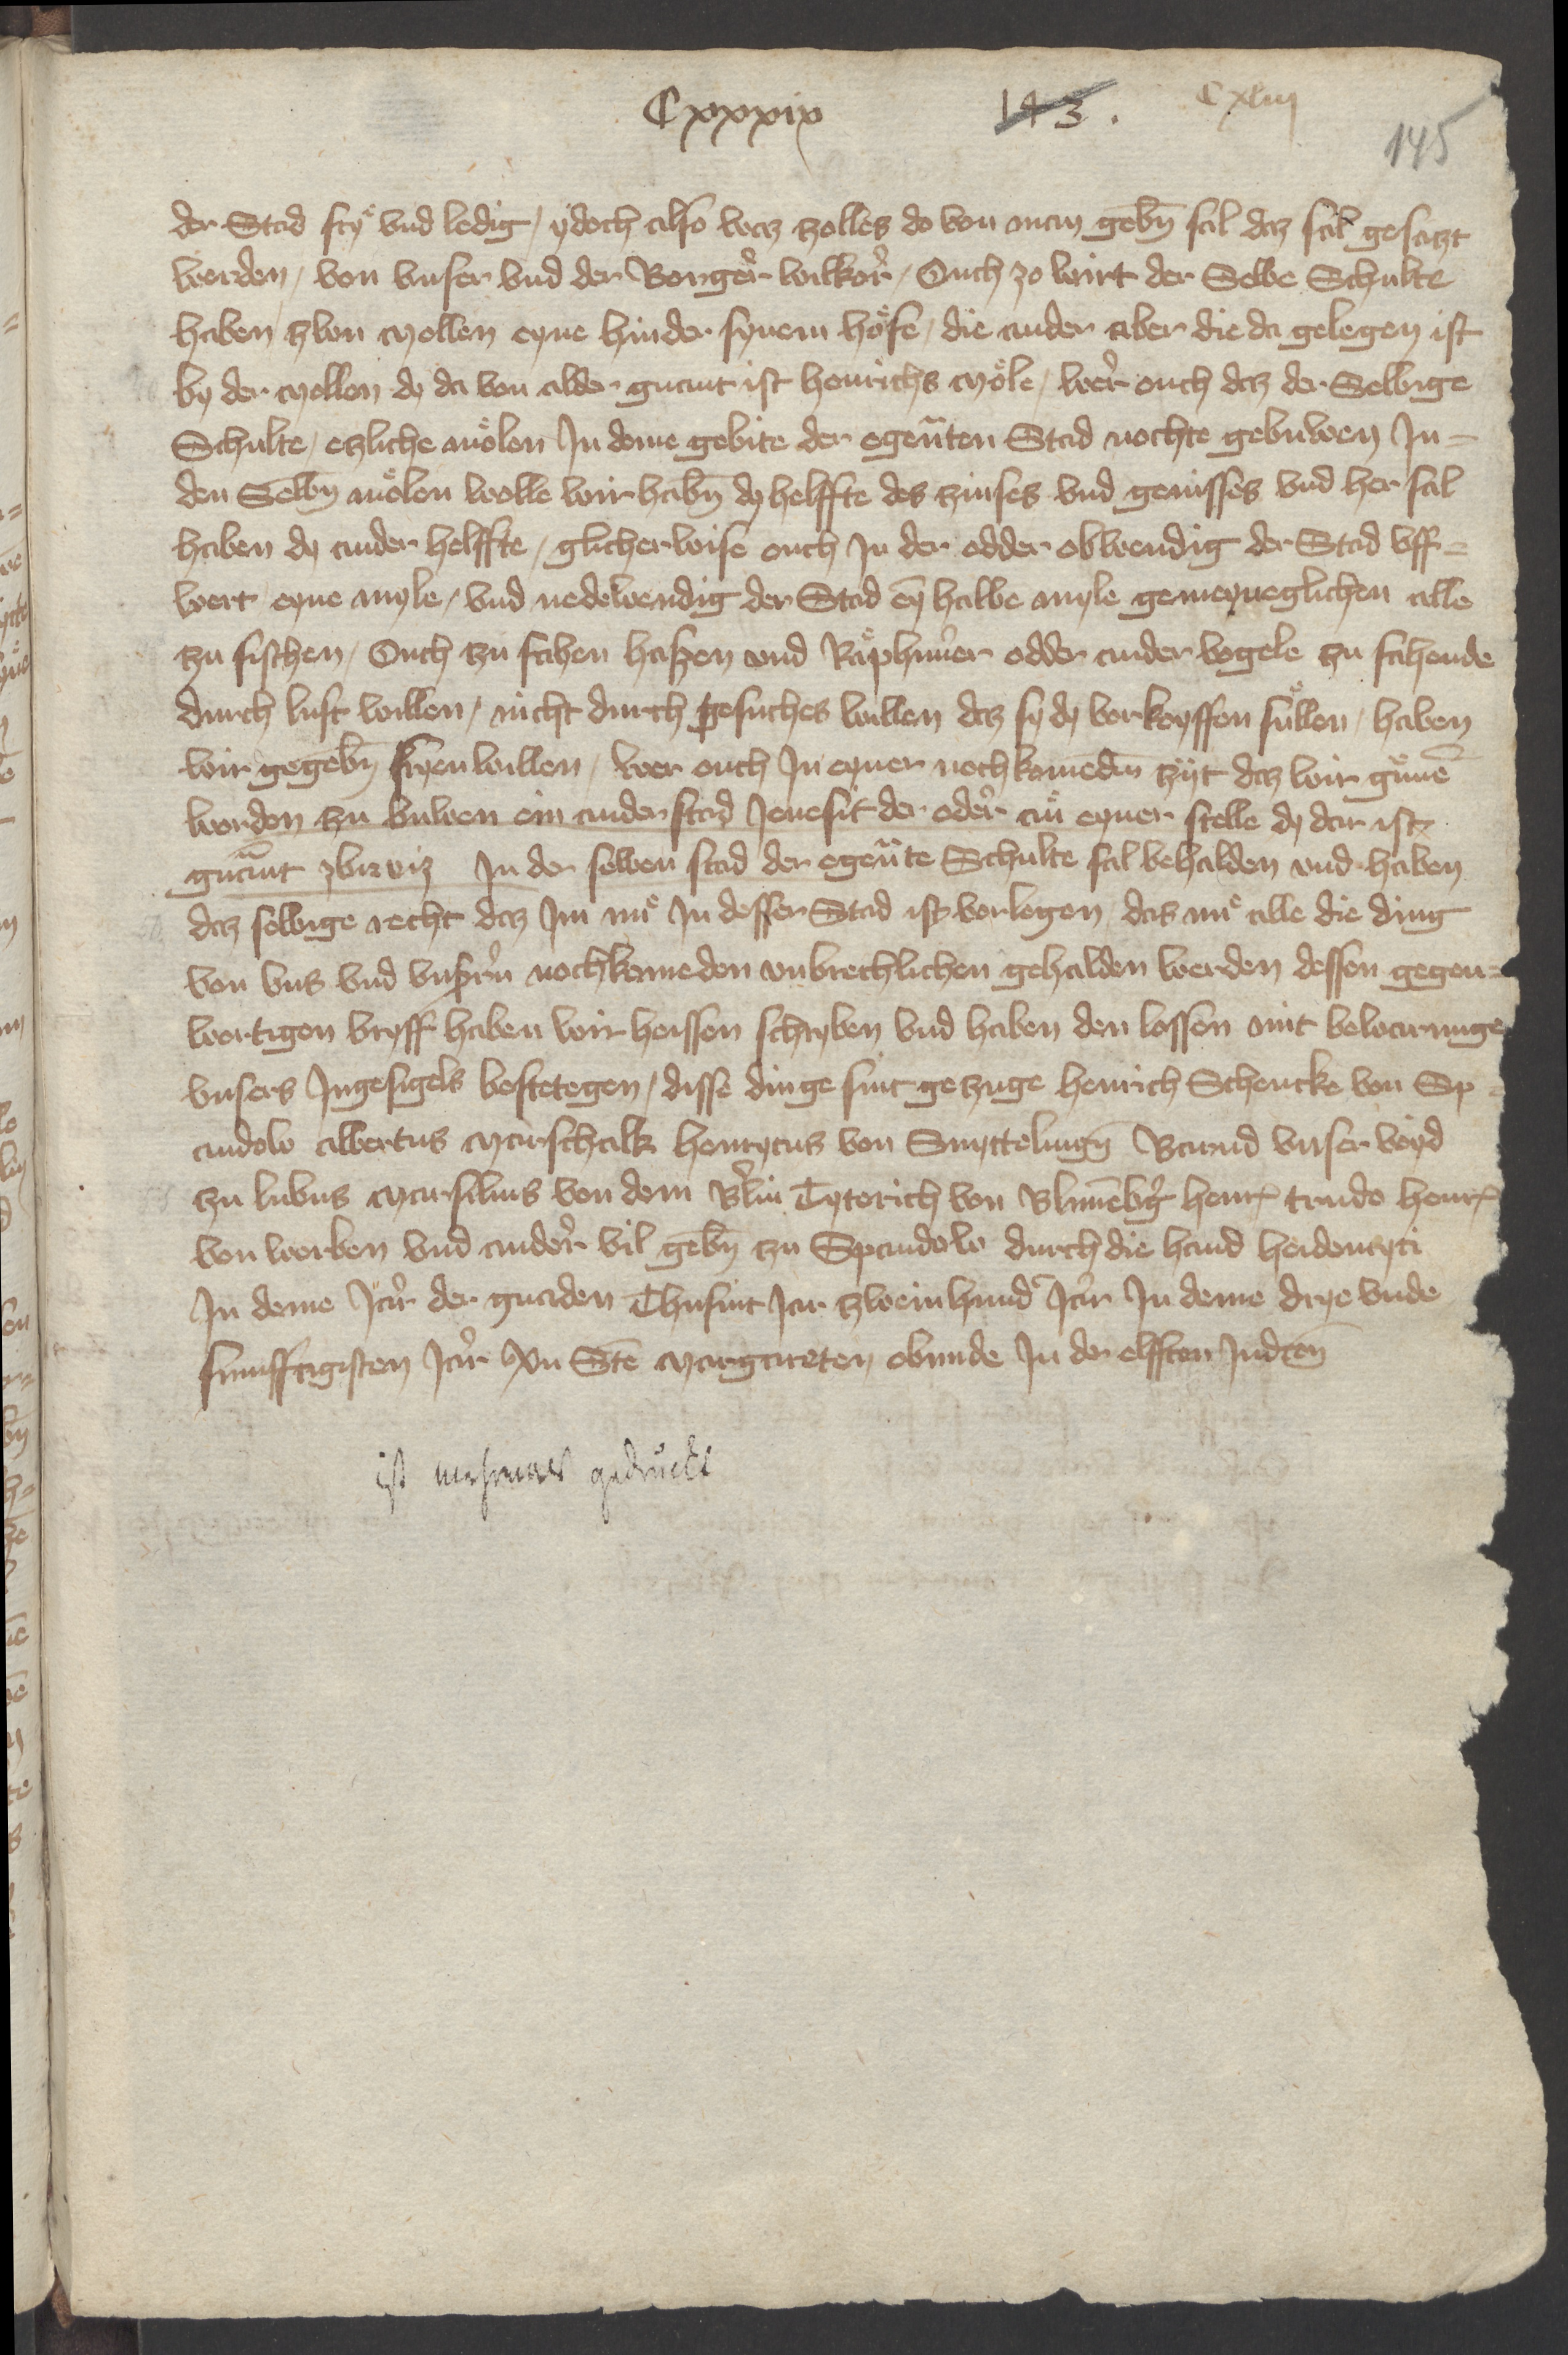 Cxxxix 143. Cxliij
145
der Stad fryͤ vnd ledig / ydoch also waz tzolles do von man gebn̄ sal daz sal gesatzt
werden / von vnser vnd der Borger wilkor / Ouch zo wirt der Selbe Schulte
haben zwu mollen eyne hinder synem hofe / die ander aber die da gelegen ist
by der mollen dy da von alder gnant ist henrichs möle / wer ouch daz der Selbige
Schulte / etzliche mölen In deme gebite der egen̄ten Stad mochte gebuwen In-
den Selbn̄ mölen wolle wir habn̄ dy helffte des zinses vnd genisses vnd her sal
haben dy ander helffte / glicherwise ouch In der odder obwendig der Stad vff-
wert eyne myle / vnd nedewendig der Stad ey̅ halbe myle gemeyneglichen alle
tzu fischen / Ouch tzu fahen hasen vnd Raphuner odder ander vogele tzu fahende
durch lust willen / nicht durch gesuches willen daz sy dy vorkeyffen sullen / haben
wir gegebn̄ fryen willen / wer ouch In eyner nochkomedin zyt daz wir gunē
worden tzu buwen ein ander stad Jenesit der oder an eyner stelle dy dar ist
gnāut zbirwiz In der selben stad der egen̄te Schulte sal behalden vnd haben
daz selbige recht daz Im nuͤ In desser Stad ist vorlegen das nuͤ alle die ding
von vns vnd vnsern nochkomeden vnbrechlichen gehalden werden dessen gegen-
wertigen bryff haben wir heissen schryben vnd haben den lossen mit bewarunge
vnsers Ingesigels bestetegen / disse dinge sint gezuge henrich Schencke von Sp-
andow albertus marschalk henrycus von Snyttelingn̄ Barnd vnser voyd
tzu lubus marsilius von dem Berlin Tyterich von Blumēbg̅ henr̅ trudo henr̅
von werben vnd ander vil gebn̄ tzu Spandow durch die hand heidenryci
In deme Jar der gnaden Thusint Jar zweinhund̅ Jar In deme drye vnde
funfftzigisten Jar An Sēte margareten obunde In der elfften Indccn̄
ist mehrmals gedruckt